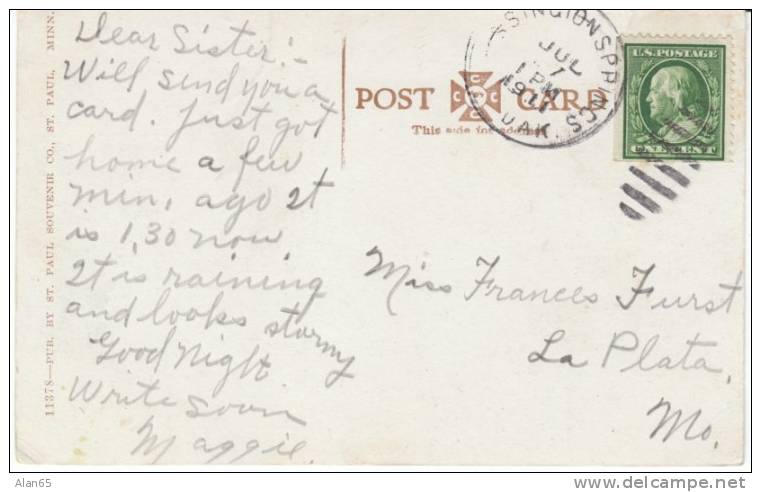 Dear Sister:-
Will send you a
card. Just got
home a few
min, ago It
is 1,30 now
It is raining
and looks stormy
Good Night
Write soon
Maggie.
POST CARD
This side for address
SINGTON SPRINGS
JUL
7
1 PM
1911
DAK.
U.S. POSTAGE
Miss Frances Furst
La Plata,
Mo.
11378—PUB. BY ST. PAUL SOUVENIR CO., ST. PAUL, MINN.
Alan65
www.delcampe.net